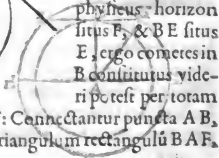 phyſicus horizon
ſitus F, & B E ſitus
E, ergo cometes in
B conſtitutus vide-
ri poteſt per totam
: Connectantur puncta A B,
riangulum rectangulū B A F.